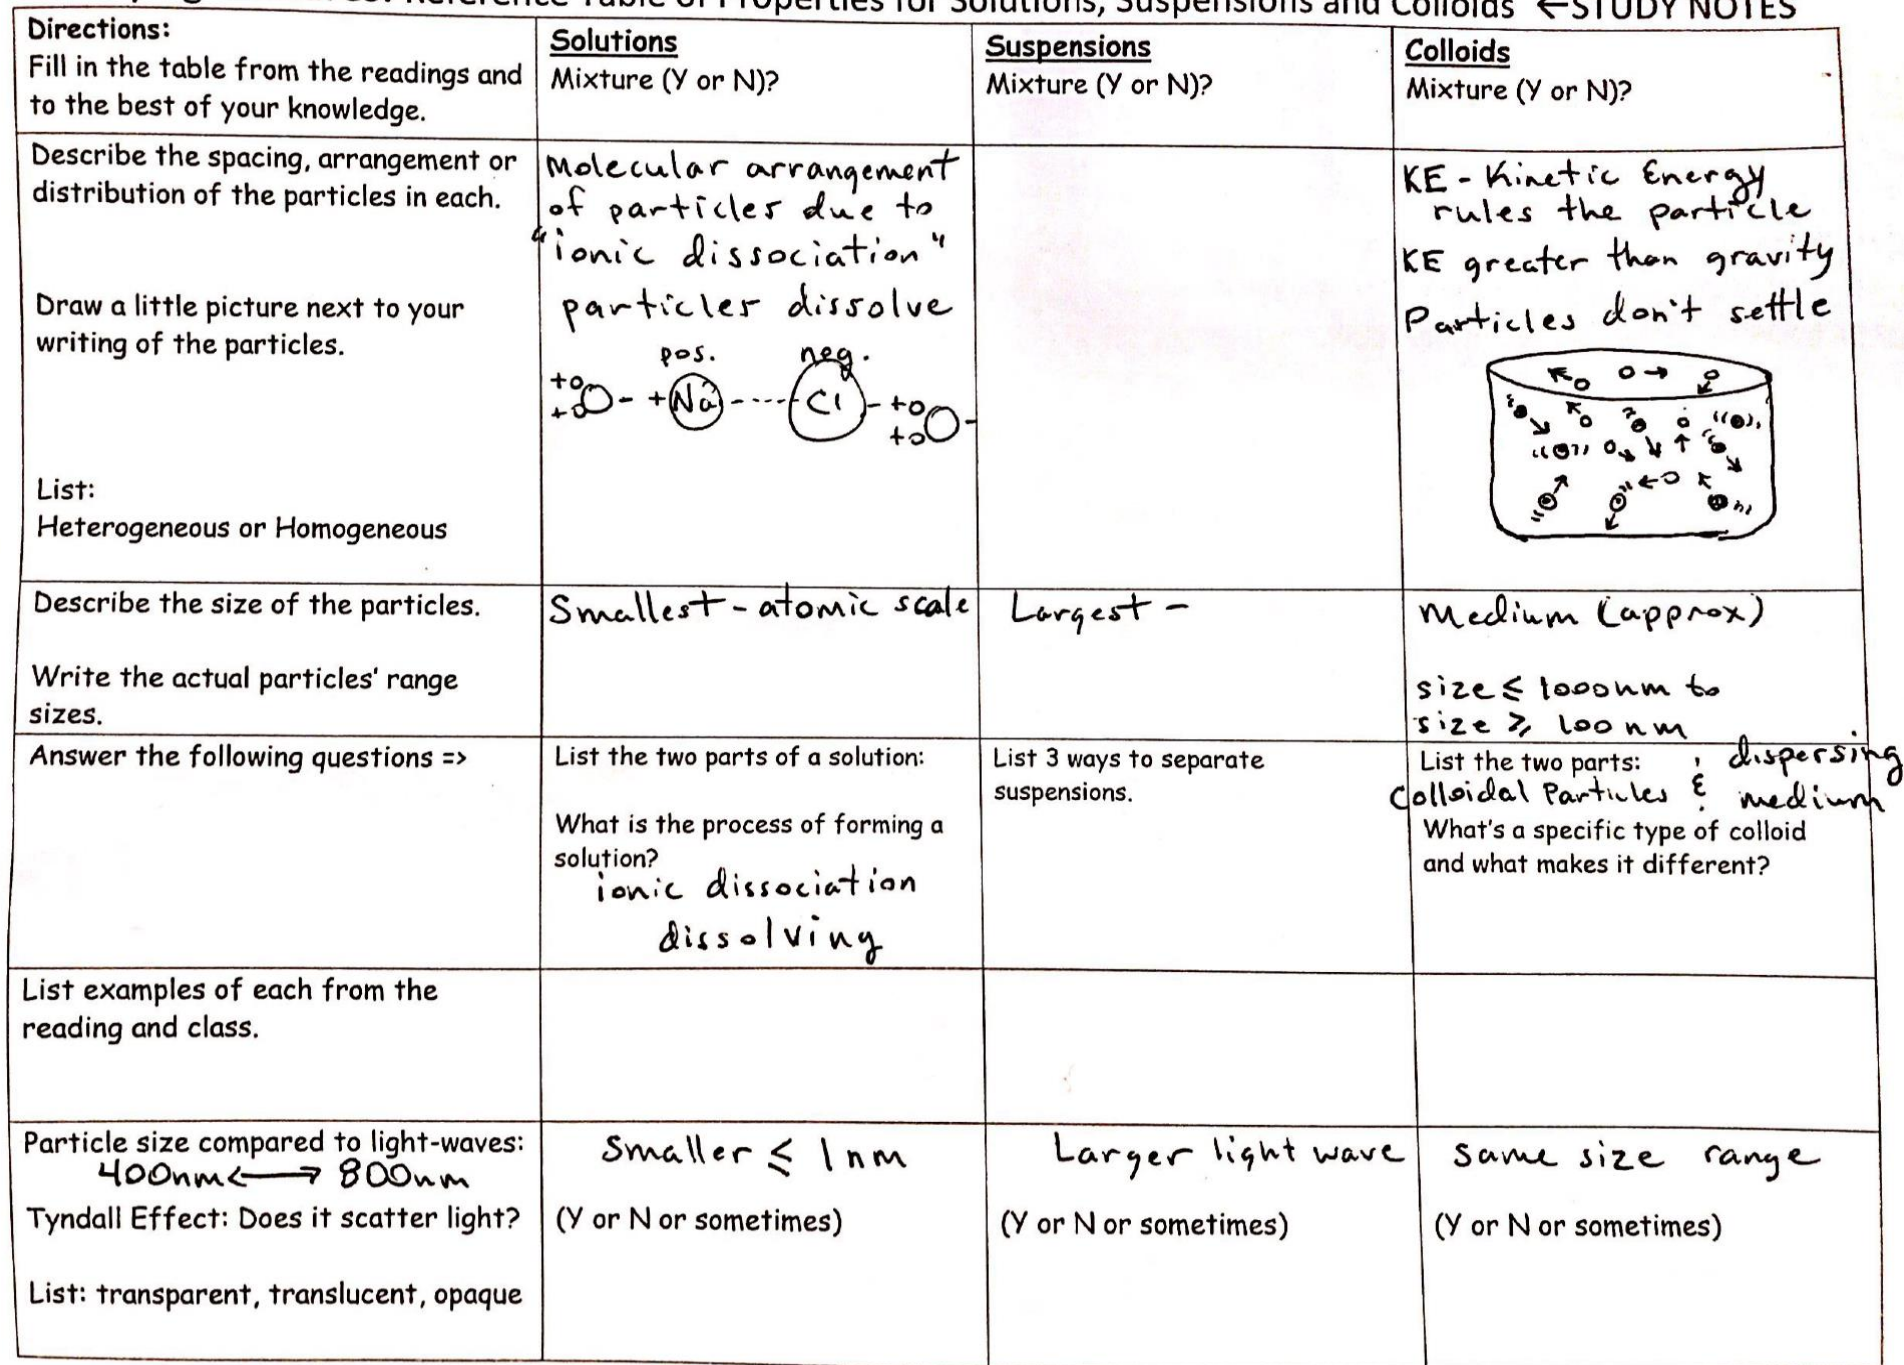 Reference Table of Properties for Solutions, Suspensions and Colloids ←STUDY NOTES
Directions:
Fill in the table from the readings and
to the best of your knowledge.
Solutions
Mixture (Y or N)?
Suspensions
Mixture (Y or N)?
Colloids
Mixture (Y or N)?
Describe the spacing, arrangement or
distribution of the particles in each.
Draw a little picture next to your
writing of the particles.
List:
Heterogeneous or Homogeneous
Molecular arrangement
of particles due to
"ionic dissociation"
particles dissolve
pos. neg.
+ + - + Na ---- Cl - + + -
KE - Kinetic Energy
rules the particle
KE greater than gravity
Particles don't settle
Describe the size of the particles.
Write the actual particles' range
sizes.
Smallest - atomic scale
Largest -
Medium (approx)
size ≤ 1000nm to
size ≥ 100nm
Answer the following questions =>
List the two parts of a solution:
What is the process of forming a
solution?
ionic dissociation
dissolving
List 3 ways to separate
suspensions.
List the two parts: ; dispersing
Colloidal Particles & medium
What's a specific type of colloid
and what makes it different?
List examples of each from the
reading and class.
Particle size compared to light-waves:
400nm ⟷ 800nm
Tyndall Effect: Does it scatter light?
List: transparent, translucent, opaque
Smaller ≤ 1nm
(Y or N or sometimes)
Larger light wave
(Y or N or sometimes)
same size range
(Y or N or sometimes)